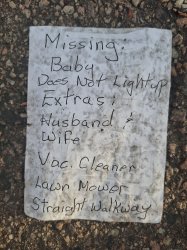 Missing:
Baby
Does Not Lightup
Extras:
Husband &
Wife
Vac. Cleaner
Lawn Mower
Straight Walkway